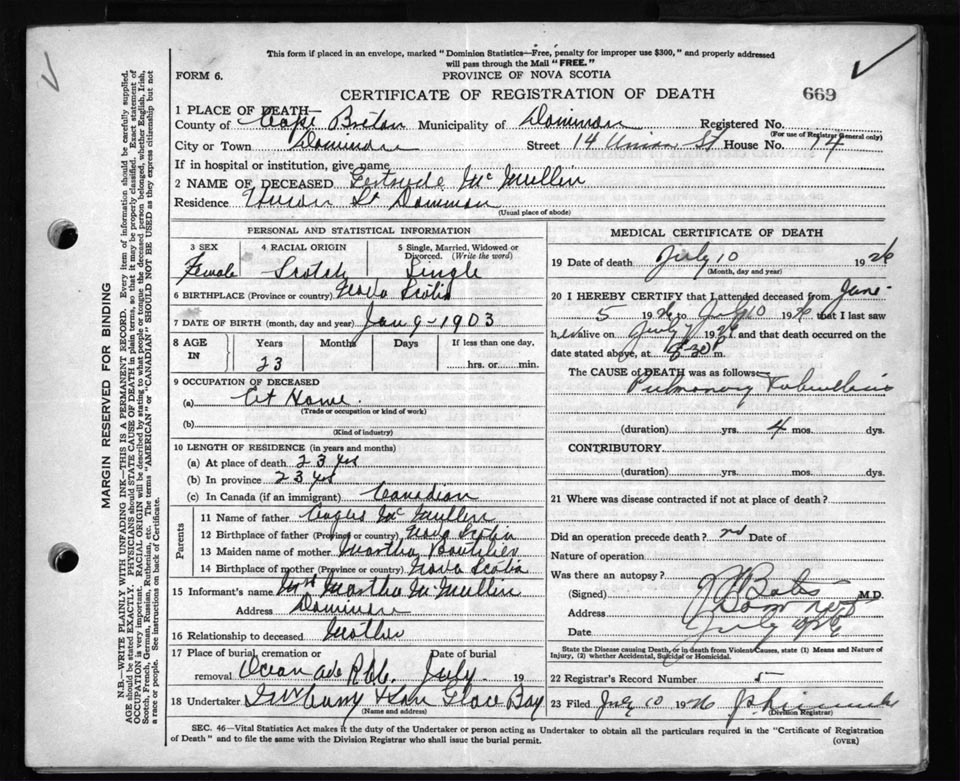 This form if placed in an envelope, marked "Dominion Statistics—Free, penalty for improper use $300," and properly addressed
will pass through the Mail "FREE."
FORM 6.
PROVINCE OF NOVA SCOTIA
CERTIFICATE OF REGISTRATION OF DEATH
669
1 PLACE OF DEATH—
County of Cape Breton Municipality of Dominion Registered No.
(For use of Registrar General only)
City or Town Dominion Street 14 Union St House No. 14
If in hospital or institution, give name
2 NAME OF DECEASED Gertrude McMullin
Residence Union St Dominion
(Usual place of abode)
PERSONAL AND STATISTICAL INFORMATION
3 SEX 4 RACIAL ORIGIN 5 Single, Married, Widowed or Divorced. (Write the word)
Female Scotch Single
6 BIRTHPLACE (Province or country) Nova Scotia
7 DATE OF BIRTH (month, day and year) Jan 9-1903
8 AGE IN Years Months Days If less than one day,
23 hrs. or min.
9 OCCUPATION OF DECEASED
(a) At Home.
(Trade or occupation or kind of work)
(b)
(Kind of industry)
10 LENGTH OF RESIDENCE (in years and months)
(a) At place of death 23 yrs
(b) In province 23 yrs
(c) In Canada (if an immigrant) Canadian
Parents
11 Name of father Angus McMullin
12 Birthplace of father (Province or country) Nova Scotia
13 Maiden name of mother Martha Boutilier
14 Birthplace of mother (Province or country) Nova Scotia
15 Informant's name Mrs Martha McMullin
Address Dominion
16 Relationship to deceased Mother
17 Place of burial, cremation or removal Date of burial
July 19
18 Undertaker & Son Glace Bay
(Name and address)
MEDICAL CERTIFICATE OF DEATH
19 Date of death July 10 1926
(Month, day and year)
20 I HEREBY CERTIFY that I attended deceased from June
5 1926 to July 10 1926 that I last saw
h er alive on July 1926 and that death occurred on the
date stated above, at m.
The CAUSE of DEATH was as follows:
Pulmonary Tuberculosis
(duration) yrs. 4 mos. dys.
CONTRIBUTORY.
(duration) yrs. mos. dys.
21 Where was disease contracted if not at place of death?
Did an operation precede death? no Date of
Nature of operation
Was there an autopsy?
(Signed) M.D.
Address Dominion
Date July
State the Disease causing Death, or in death from Violent Causes, state (1) Means and Nature of Injury, (2) whether Accidental, Suicidal or Homicidal.
22 Registrar's Record Number 5
23 Filed July 10 1926
(Division Registrar)
SEC. 46—Vital Statistics Act makes it the duty of the Undertaker or person acting as Undertaker to obtain all the particulars required in the "Certificate of Registration
of Death" and to file the same with the Division Registrar who shall issue the burial permit.
(OVER)
MARGIN RESERVED FOR BINDING
N.B.—WRITE PLAINLY WITH UNFADING INK—THIS IS A PERMANENT RECORD. Every item of information should be carefully supplied.
AGE should be stated EXACTLY. PHYSICIANS should STATE CAUSE OF DEATH in plain terms, so that it may be properly classified. Exact statement of
OCCUPATION is very important. RACIAL ORIGIN will be described by stating to what people or tongue the deceased person belonged, whether English, Irish,
Scotch, French, German, Russian, Ruthenian, etc. The terms "AMERICAN" or "CANADIAN" SHOULD NOT BE USED as they express citizenship but not
a race or people. See instructions on back of Certificate.